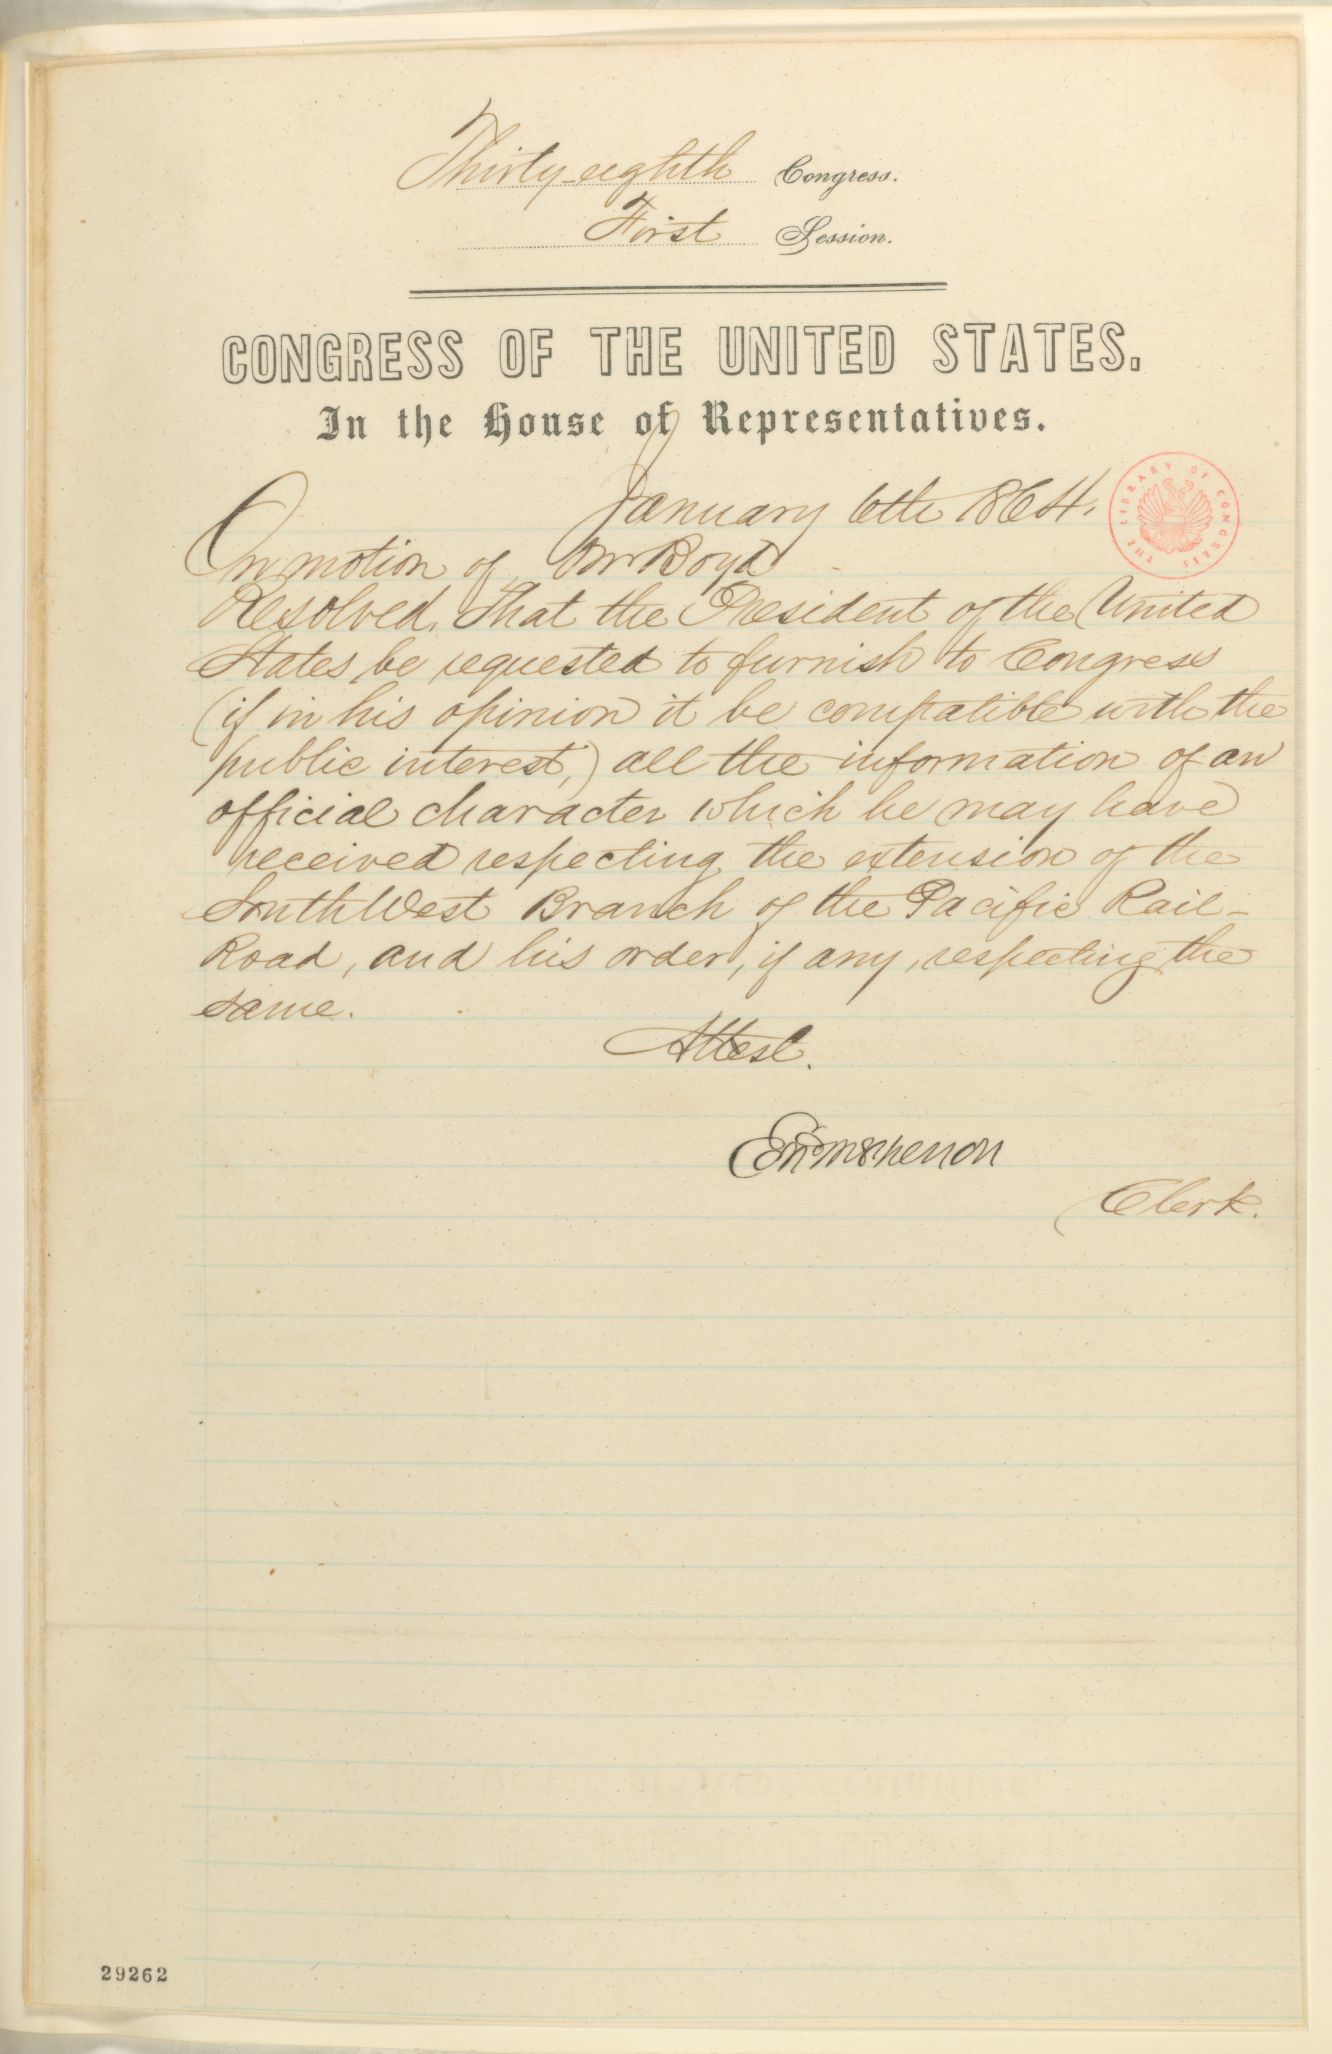 Thirty-eighth Congress.
First Session.
CONGRESS OF THE UNITED STATES.
In the House of Representatives.
January 6th 1864.
THE LIBRARY OF CONGRESS
On motion of Mr Boyd
Resolved, That the President of the United
States be requested to furnish to Congress
(if in his opinion it be compatible with the
public interest,) all the information of an
official character which he may have
received respecting the extension of the
South West Branch of the Pacific Rail-
Road, and his order, if any, respecting the
same.
Attest.
Edwd McPherson
Clerk.
29262